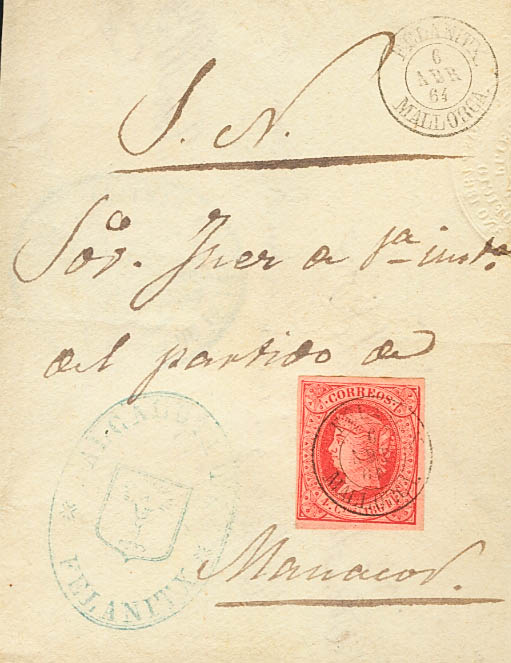 FELANITX.
6
ABR
64
MALLORCA.
S. N.
Sor. Juez de 1ª instª
del partido de
CORREOS
MALLORCA
ALCALDIA
FELANITX
Manacor.